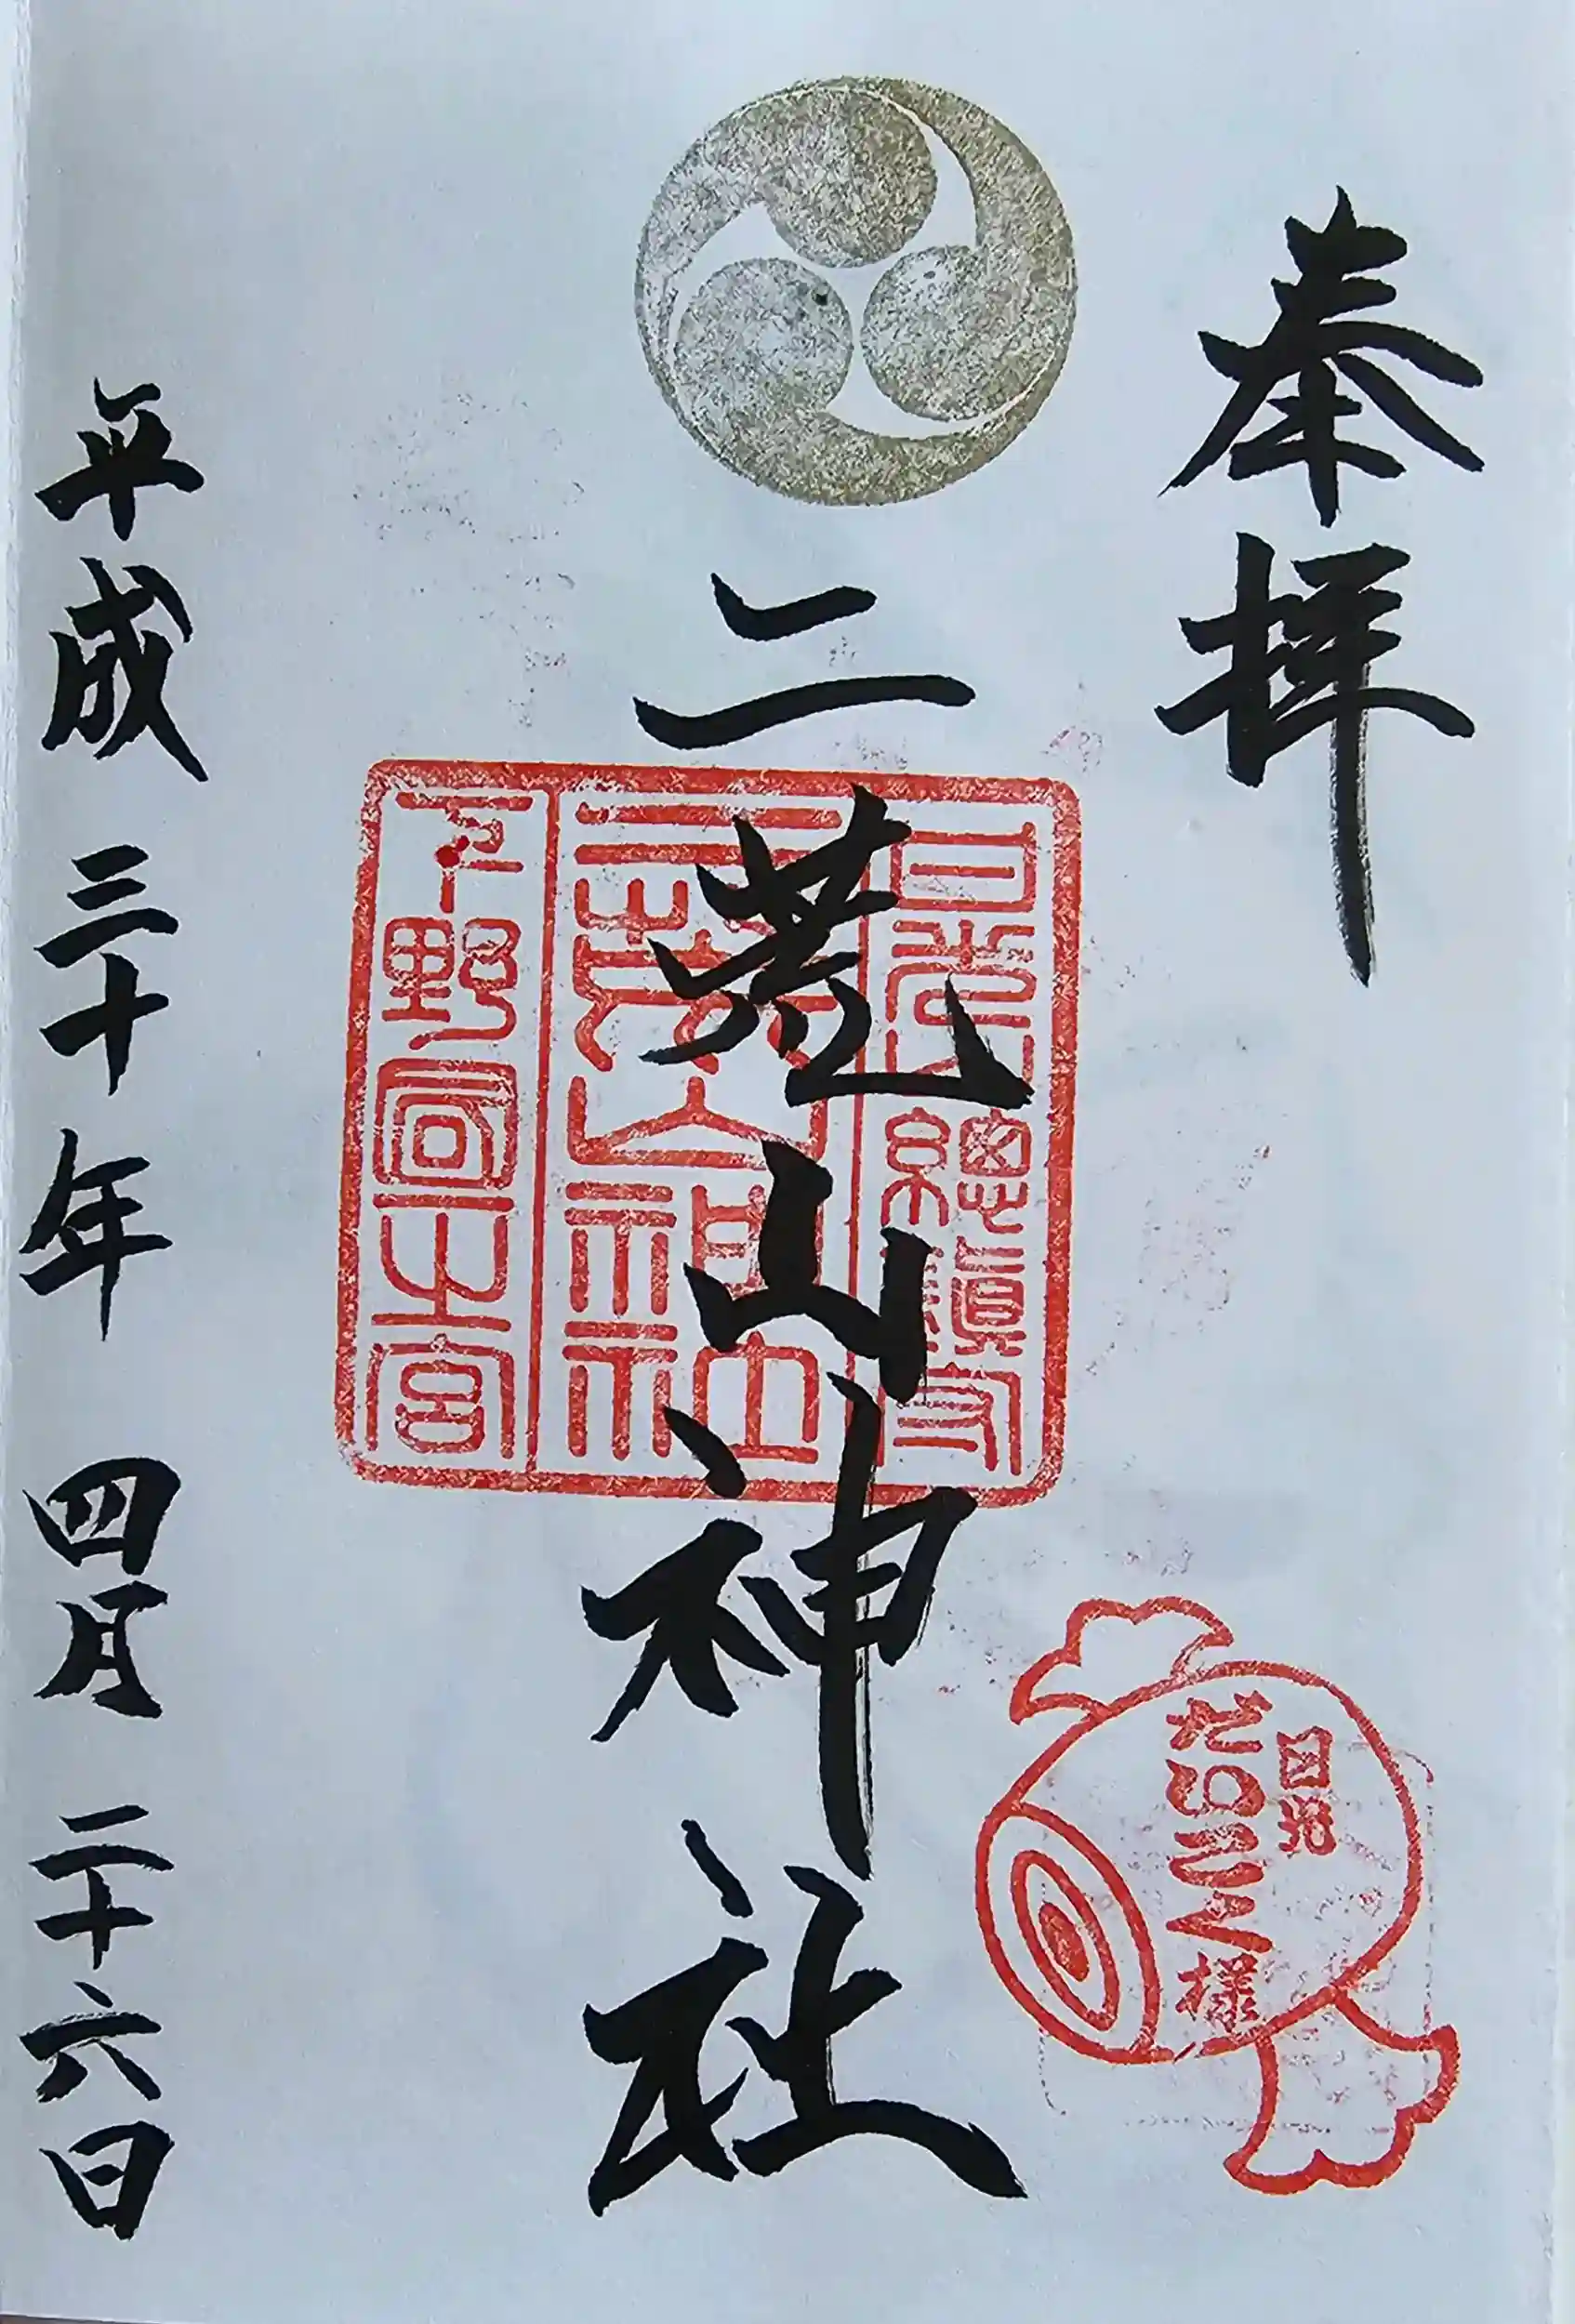 奉拝
日光
だいこく様
二荒山神社
日光總鎮守
二荒山神社
下野国一之宮
平成三十年四月二十六日